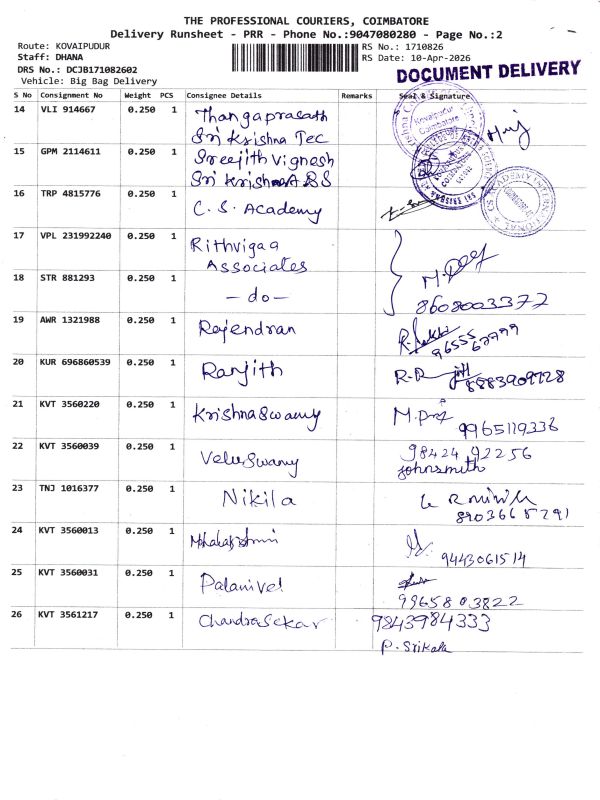 THE PROFESSIONAL COURIERS, COIMBATORE
Delivery Runsheet - PRR - Phone No.:9047080280 - Page No.:2
Route: KOVAIPUDUR
RS No.: 1710826
Staff: DHANA
RS Date: 10-Apr-2026
DRS No.: DCJB171082602
Vehicle: Big Bag Delivery
DOCUMENT DELIVERY
S No Consignment No Weight PCS Consignee Details Remarks Seal & Signature
14 VLI 914667 0.250 1 Thangaprasath
Sri Krishna Tec
Kovaipudur
Coimbatore
15 GPM 2114611 0.250 1 Sreejith Vignesh
Sri Krishna
16 TRP 4815776 0.250 1 C. S. Academy
17 VPL 231992240 0.250 1 Rithvigaa
Associates
18 STR 881293 0.250 1 - do -
8608003377
19 AWR 1321988 0.250 1 Rajendran
20 KUR 696860539 0.250 1 Ranjith
21 KVT 3560220 0.250 1 Krishnaswamy
9965119336
22 KVT 3560039 0.250 1 Veluswamy 98424 92256
johnsmith
23 TNJ 1016377 0.250 1 Nikila
24 KVT 3560013 0.250 1
9443061514
25 KVT 3560031 0.250 1 Palanivel
9965803822
26 KVT 3561217 0.250 1 Chandrasekar 9843984333
P. Srikala